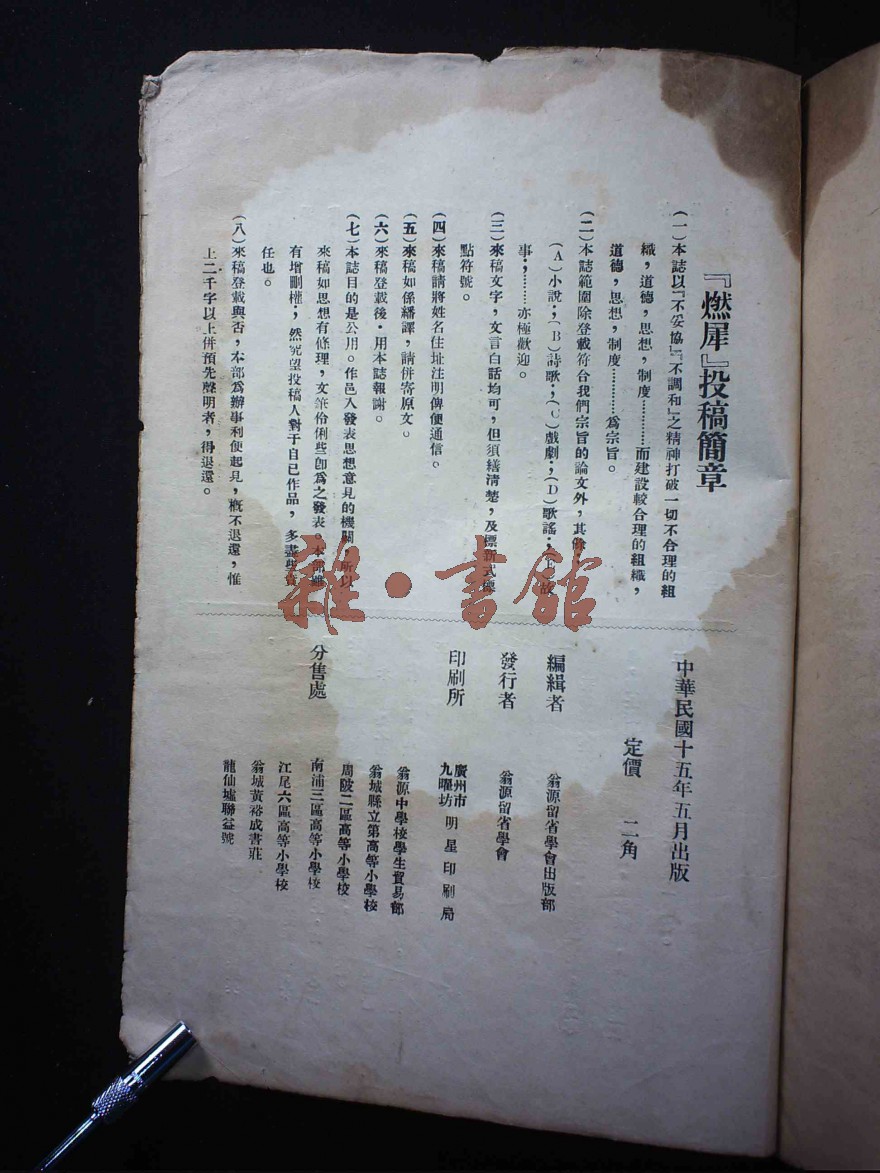 『燃犀』投稿簡章
(一)本誌以『不妥協』『不調和』之精神打破一切不合理的組
織,道德,思想,制度…………而建設較合理的組織,
道德,思想,制度…………爲宗旨。
(二)本誌範圍除登載符合我們宗旨的論文外,其餘
(A)小說;(B)詩歌;(C)戲劇;(D)歌謠;(E)故
事;……亦極歡迎。
(三)來稿文字,文言白話均可,但須繕清楚,及標新式標
點符號。
(四)來稿請將姓名住址注明俾便通信。
(五)來稿如係繙譯,請併寄原文。
(六)來稿登載後,用本誌報謝。
(七)本誌目的是公用。作邑人發表思想意見的機關,所以
來稿如思想有條理,文筆伶俐些卽爲之發表。本部雖
有增刪權;然究望投稿人對于自己作品,多盡些責
任也。
(八)來稿登載與否,本部爲辦事利便起見,槪不退還,惟
上二千字以上併預先聲明者,得退還。
中華民國十五年五月出版
定價 二角
編緝者 翁源留省學會出版部
發行者 翁源留省學會
印刷所 廣州市九曜坊 明星印刷局
分售處
翁源中學校學生貿易部
翁城縣立第高等小學校
周陂二區高等小學校
南浦三區高等小學校
江尾六區高等小學校
翁城黃裕成書莊
龍仙墟聯益號
雜·書館